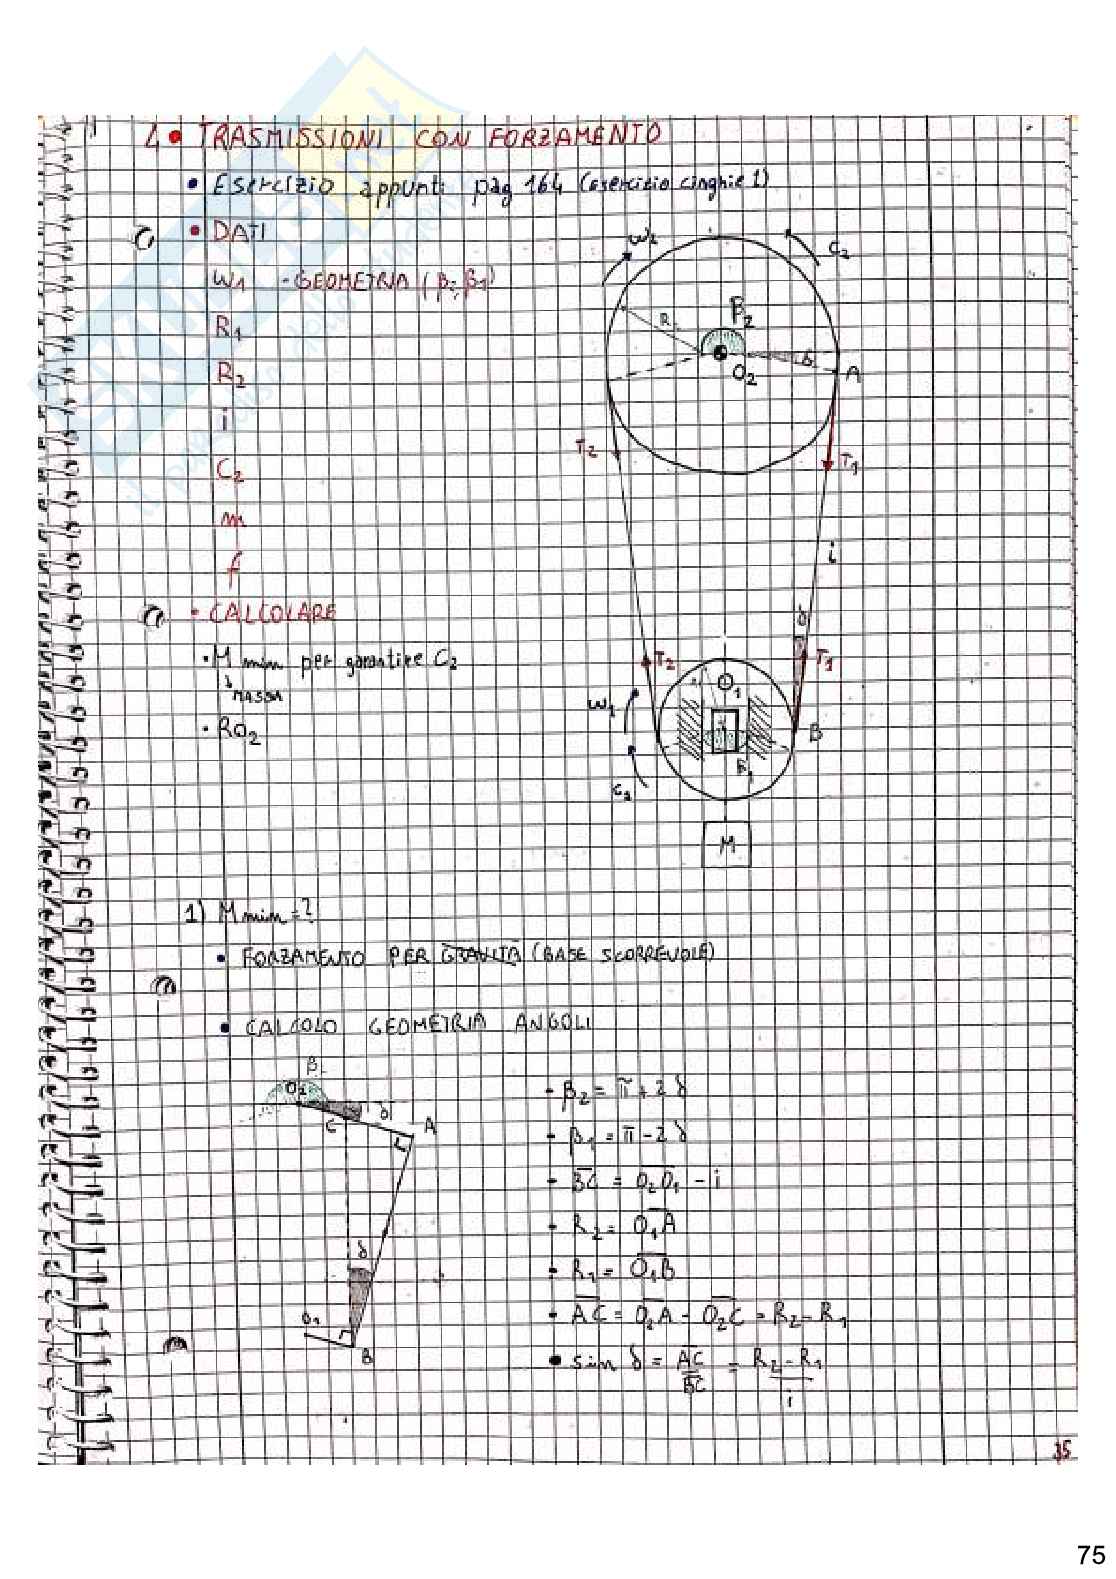 4 • TRASMISSIONI CON FORZAMENTO
• Esercizio appunti pag 164 (esercizio cinghie 1)
• DATI
ω1 - GEOMETRIA (β2, β1)
R1
R2
i
C2
m
f
• CALCOLARE
• M min per garantire C2
MASSA
• RO2
ω2
C2
β2
R2
O2
δ
A
T2
T1
i
δ
T2
T1
O1
ω1
B
β1
C1
M
1) M min = ?
• FORZAMENTO PER GRAVITÀ (BASE SCORREVOLE)
• CALCOLO GEOMETRIA ANGOLI
β2
O2
δ
C
A
δ
O1
B
- β2 = π + 2δ
- β1 = π - 2δ
- BC = O2O1 - i
- R2 = O1A
- R1 = O1B
- AC = O2A - O2C = R2 - R1
• sin δ = AC/BC = R2 - R1/i
35
75